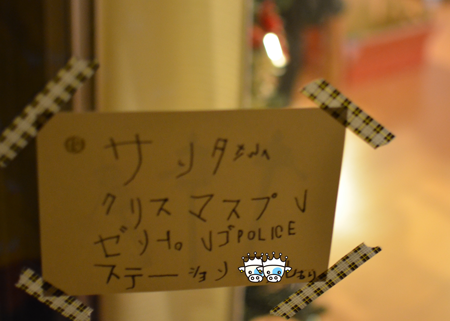 サンタさんへ
クリスマスプレ
ゼントは。レゴPOLICE
ステーション